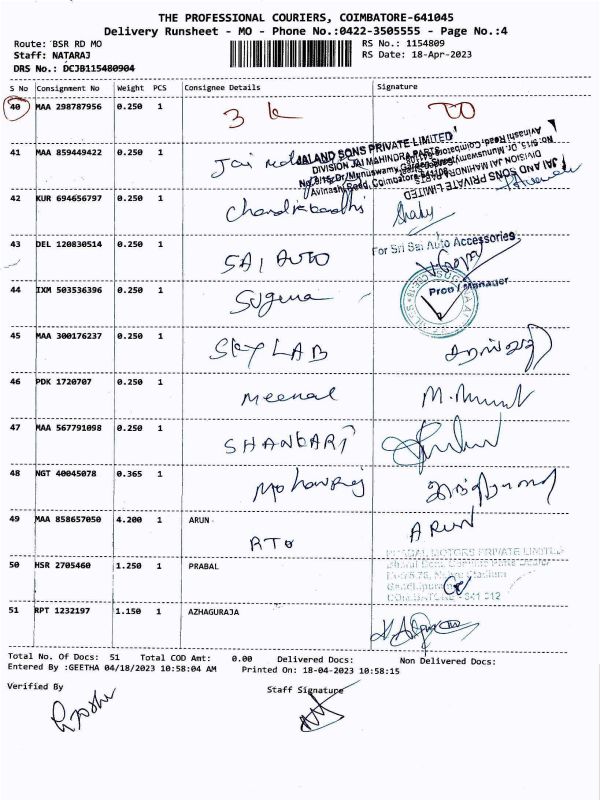 THE PROFESSIONAL COURIERS, COIMBATORE-641045
Delivery Runsheet - MO - Phone No.:0422-3505555 - Page No.:4
Route: BSR RD MO RS No.: 1154809
Staff: NATARAJ RS Date: 18-Apr-2023
DRS No.: DCJB115480904
S No Consignment No Weight PCS Consignee Details Signature
40 MAA 298787956 0.250 1
41 MAA 859449422 0.250 1
JAI AND SONS PRIVATE LIMITED
DIVISION JAI MAHINDRA PARTS
Avinashi Road, Coimbatore
42 KUR 694656797 0.250 1
43 DEL 120830514 0.250 1 SAI AUTO
For Sri Sai Auto Accessories,
Prop / Manager
44 IXM 503536396 0.250 1 Suguna
45 MAA 300176237 0.250 1 SKY LAB
46 PDK 1720707 0.250 1 Meenal
47 MAA 567791098 0.250 1 SHANKARI
48 NGT 40045078 0.365 1
49 MAA 858657050 4.200 1 ARUN ARUN
RTO
MOTORS PRIVATE LIMITED
50 HSR 2705460 1.250 1 PRABAL
COIMBATORE - 641 012
51 RPT 1232197 1.150 1 AZHAGURAJA
Total No. Of Docs: 51 Total COD Amt: 0.00 Delivered Docs: Non Delivered Docs:
Entered By :GEETHA 04/18/2023 10:58:04 AM Printed On: 18-04-2023 10:58:15
Verified By Staff Signature